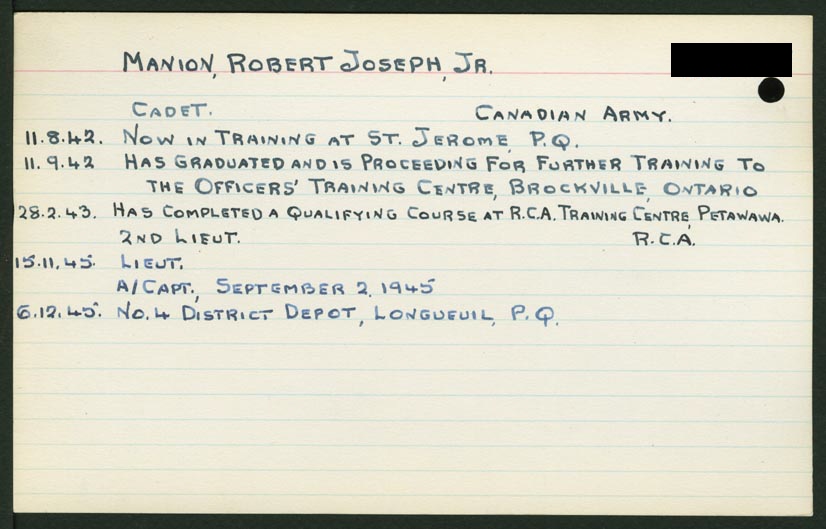 MANION, ROBERT JOSEPH, JR.
CADET. CANADIAN ARMY.
11.8.42. NOW IN TRAINING AT ST. JEROME, P.Q.
11.9.42 HAS GRADUATED AND IS PROCEEDING FOR FURTHER TRAINING TO
THE OFFICERS' TRAINING CENTRE, BROCKVILLE, ONTARIO
28.2.43. HAS COMPLETED A QUALIFYING COURSE AT R.C.A. TRAINING CENTRE, PETAWAWA.
2ND LIEUT. R.C.A.
15.11.45. LIEUT.
A/CAPT., SEPTEMBER 2, 1945
6.12.45. NO. 4 DISTRICT DEPOT, LONGUEUIL, P.Q.